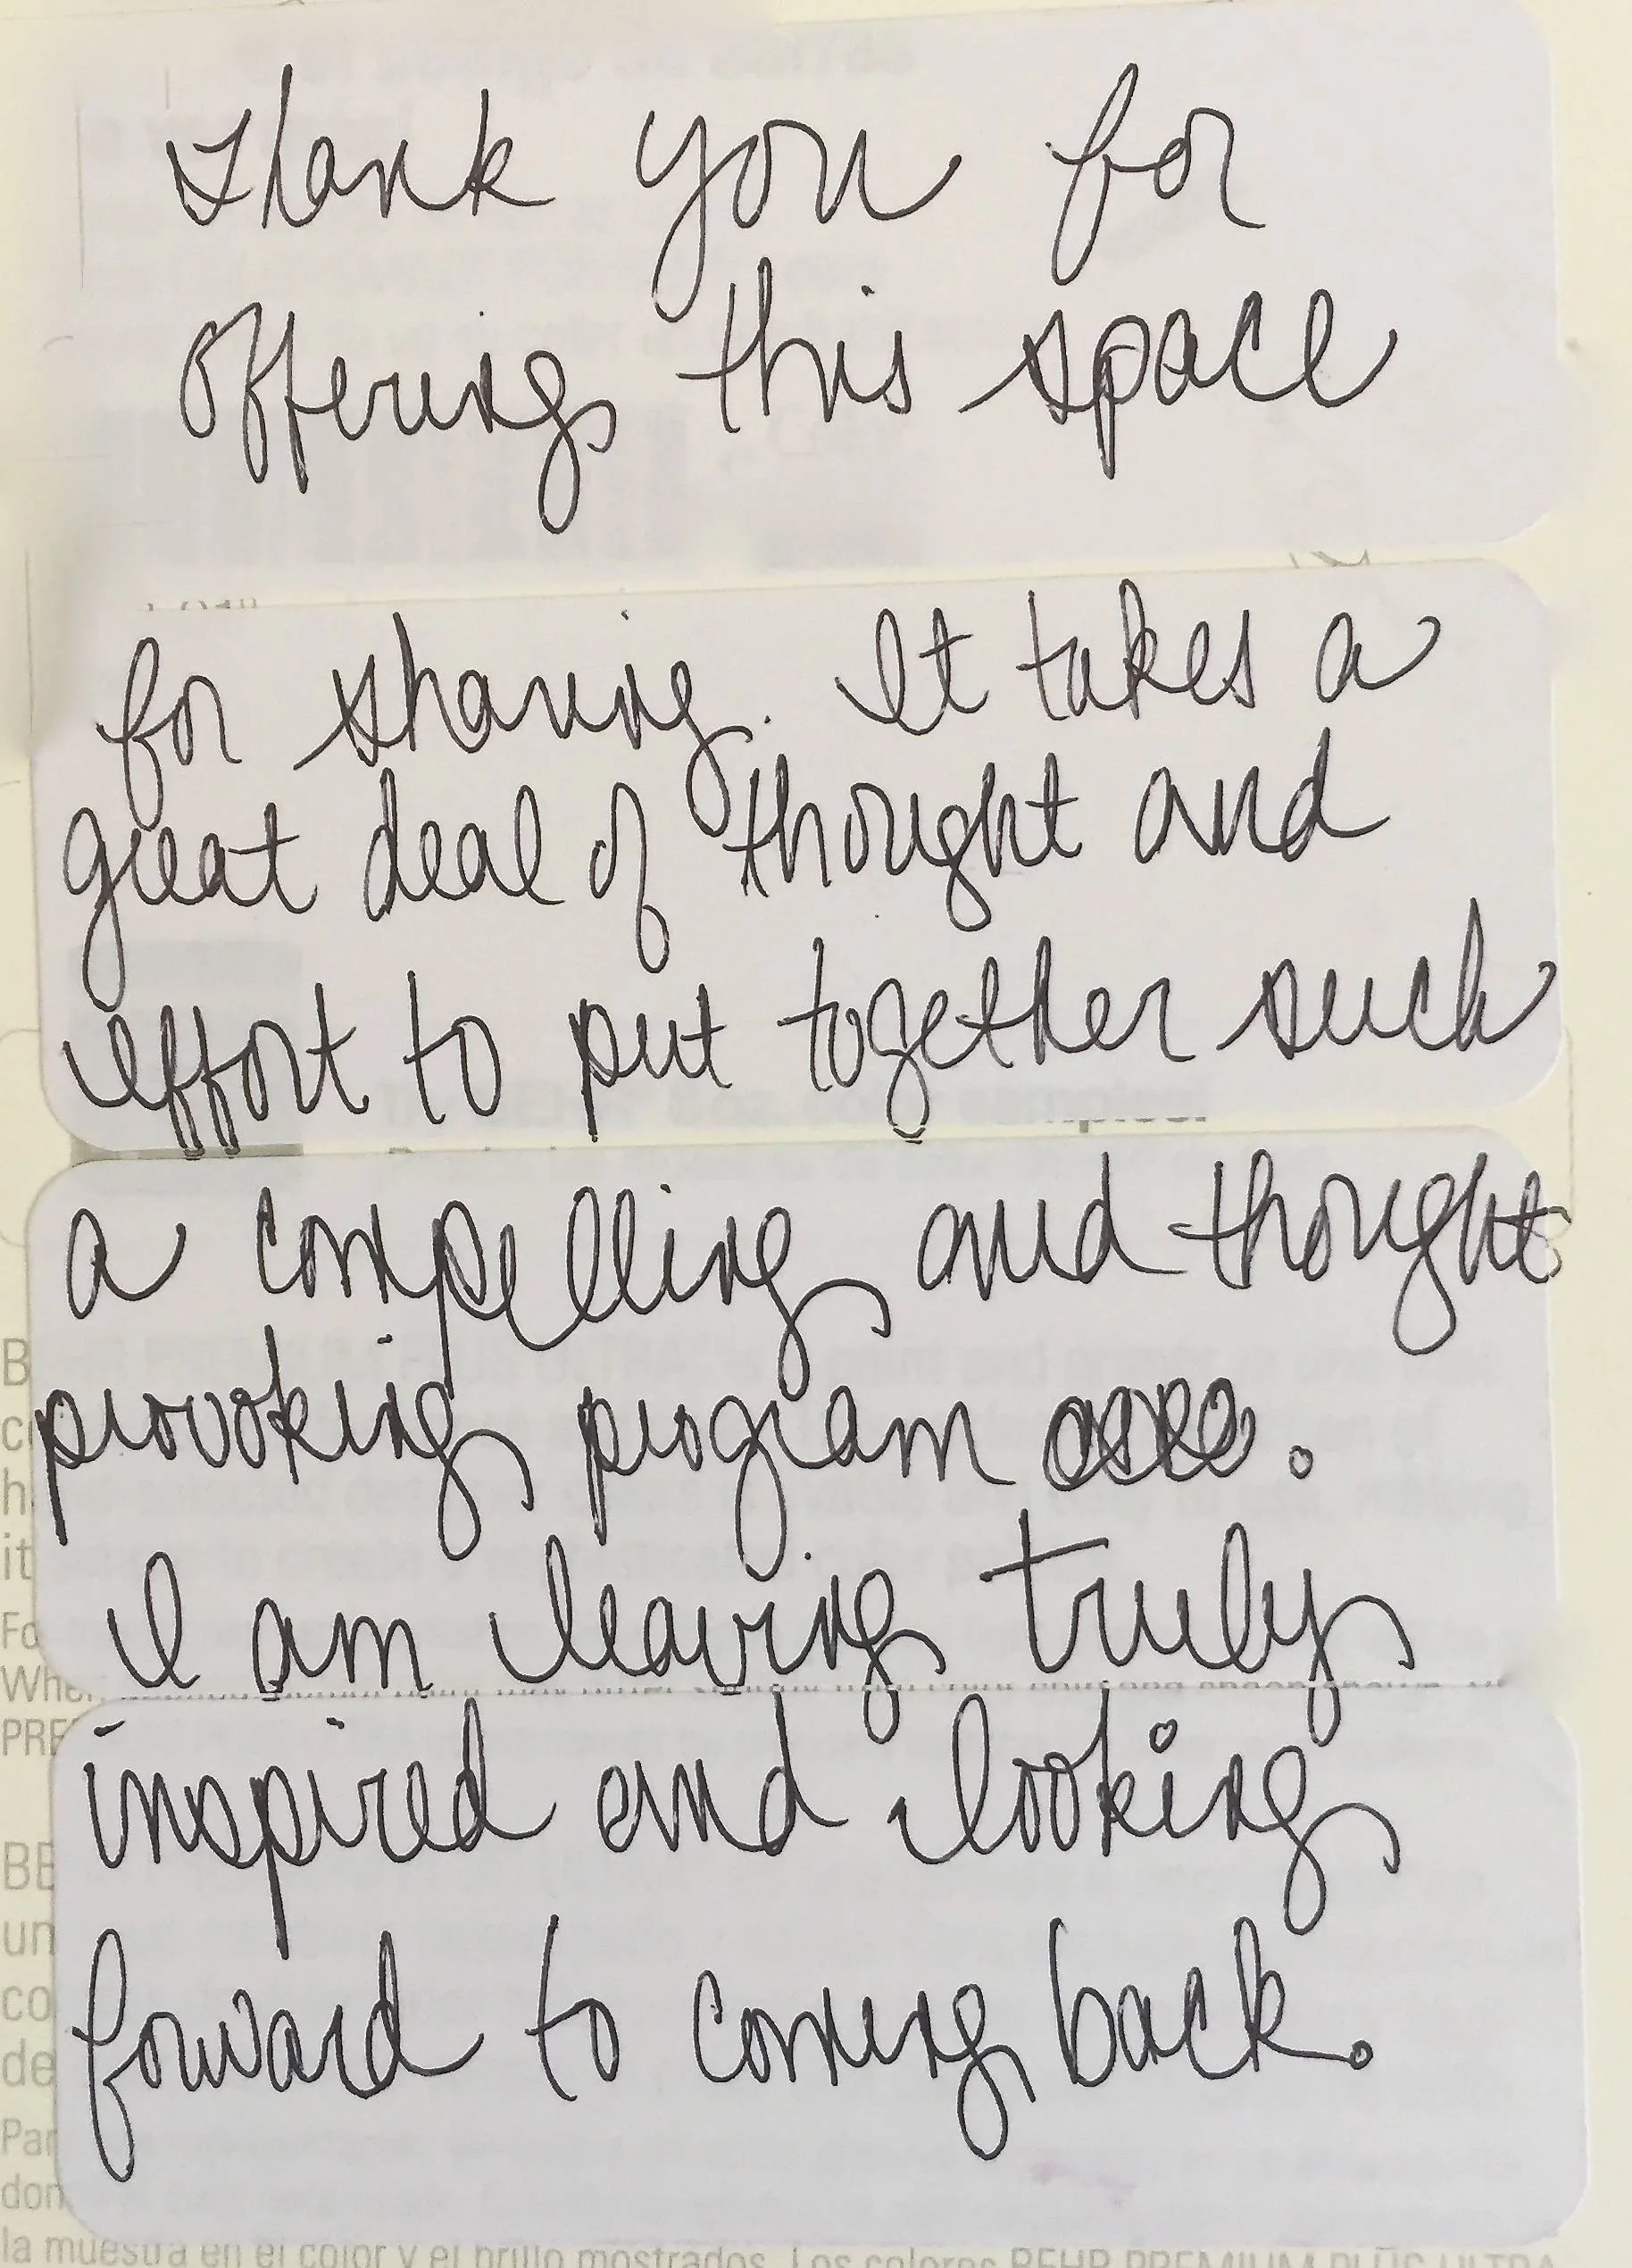 Thank you for
offering this space
for sharing. It takes a
great deal of thought and
effort to put together such
a compelling and thought
provoking program.
I am leaving truly
inspired and looking
forward to coming back.
B
h
it
Fo
Whe
PRE
BE
un
co
de
Par
don
la muestra en el color y el brillo mostrados. Los colores BEHR PREMIUM PLUS ULTRA